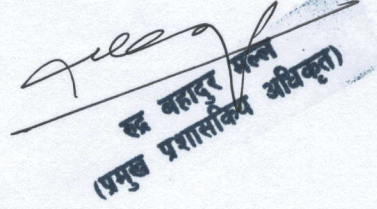 रुद्र बहादुर मल्ल
(प्रमुख प्रशासकिय अधिकृत)